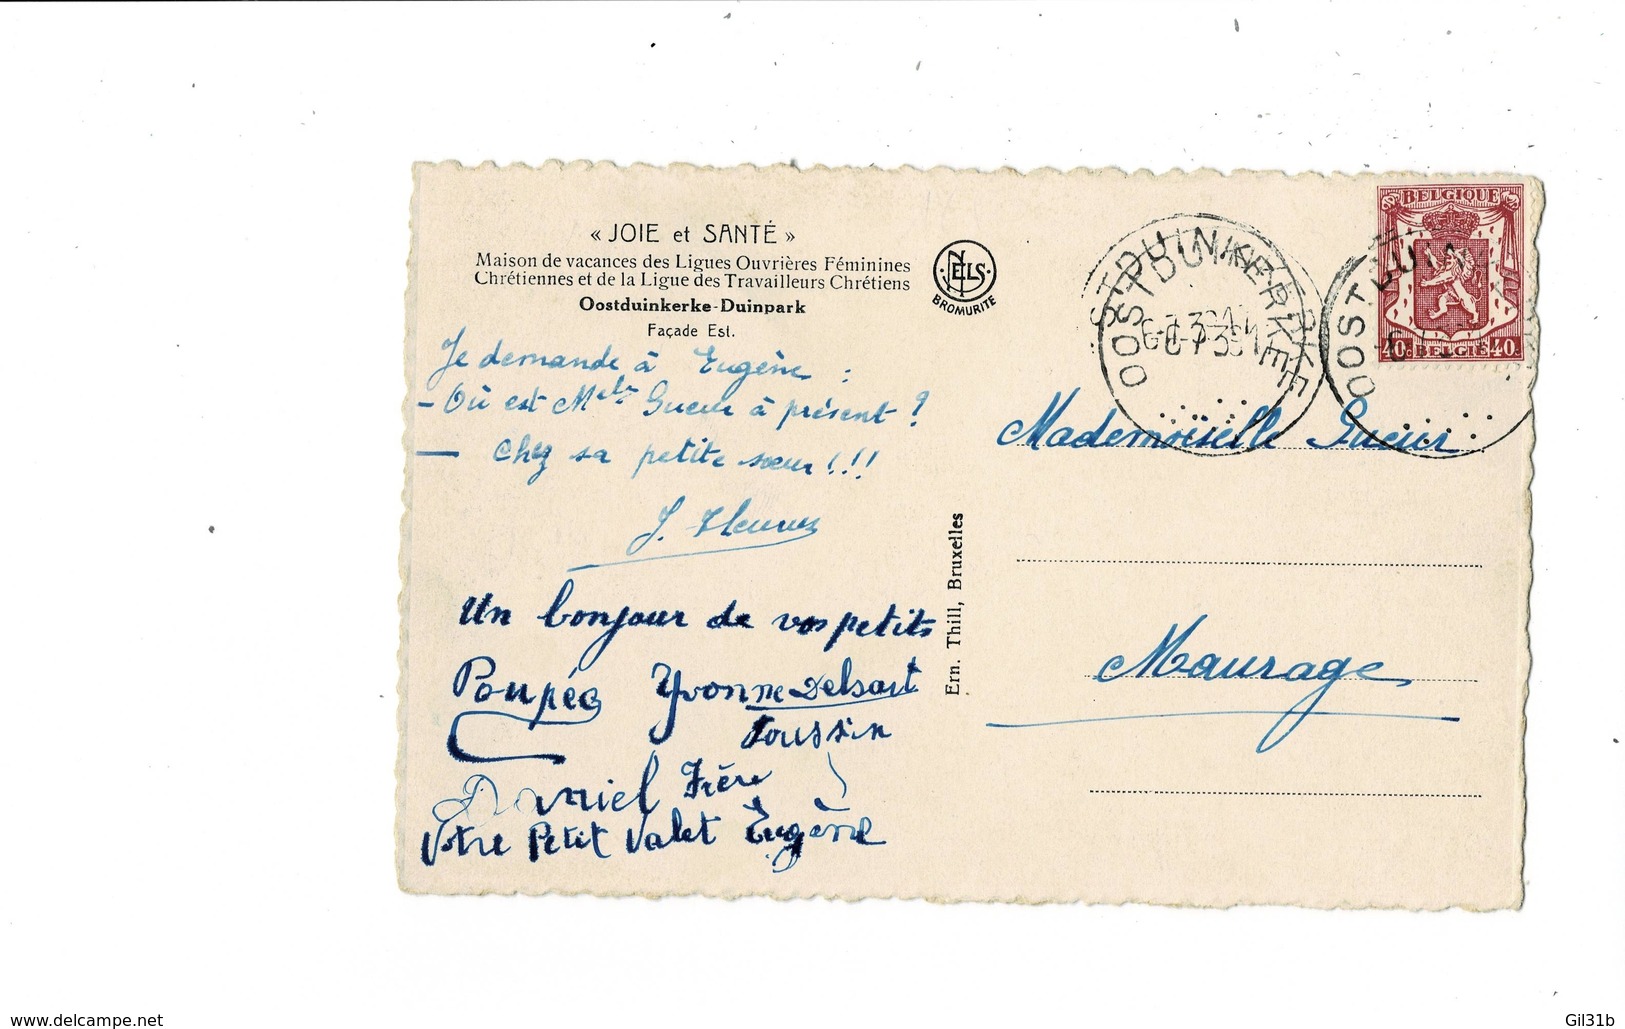 « JOIE et SANTÉ »
Maison de vacances des Ligues Ouvrières Féminines
Chrétiennes et de la Ligue des Travailleurs Chrétiens
Oostduinkerke-Duinpark
Façade Est.
NELS
BROMURITE
Je demande à Eugène :
- Où est Melle Gueur à présent ?
— Chez sa petite sœur !!!
Un bonjour de vos petits
Poupée Yvonne Delsart
Toussin
Daniel Frère
Votre Petit Valet Eugène
Ern. Thill, Bruxelles
OOSTDUINKERKE
BELGIQUE
40c BELGIË 40c
OOSTDUIN
Mademoiselle Gueur
Maurage
www.delcampe.net
Gil31b